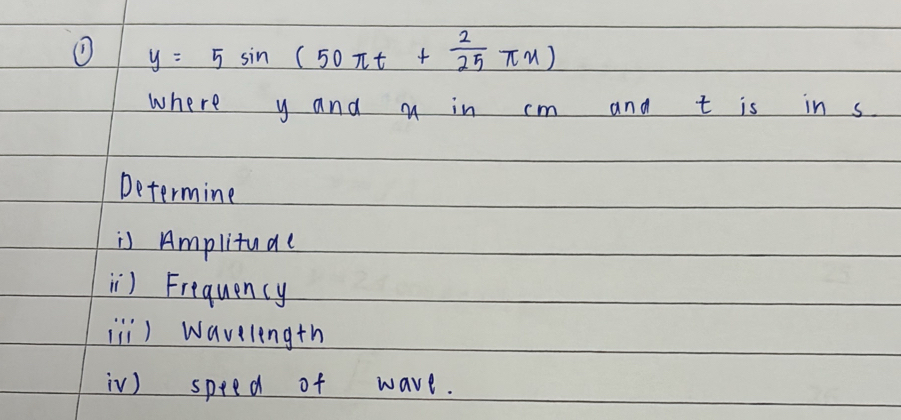 ① y = 5 sin ( 50 πt + 2/25 πx )
where y and x in cm and t is in s.
Determine
i) Amplitude
ii) Frequency
iii) Wavelength
iv) speed of wave.